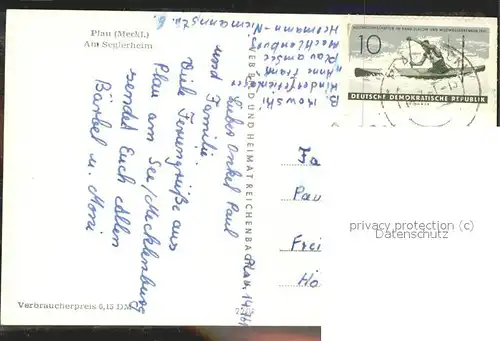 Plau (Meckl.)
Am Seglerheim
Lieber Onkel Paul
und Familie.
Viele Feriengrüße aus
Plau am See/Mecklenburg
sendet Euch allen
Bärbel u. Moni
Plau, 14.7.61
Kinderferienlager
"Anne Frank"
Plau am See
Mecklenburg
Hermann-Niemannstr. 6
VEB BILD UND HEIMAT REICHENBACH
10
DEUTSCHE DEMOKRATISCHE REPUBLIK
Fa
Pau
Frei
Hö
privacy protection (c)
Datenschutz
Verbraucherpreis 0,15 DM